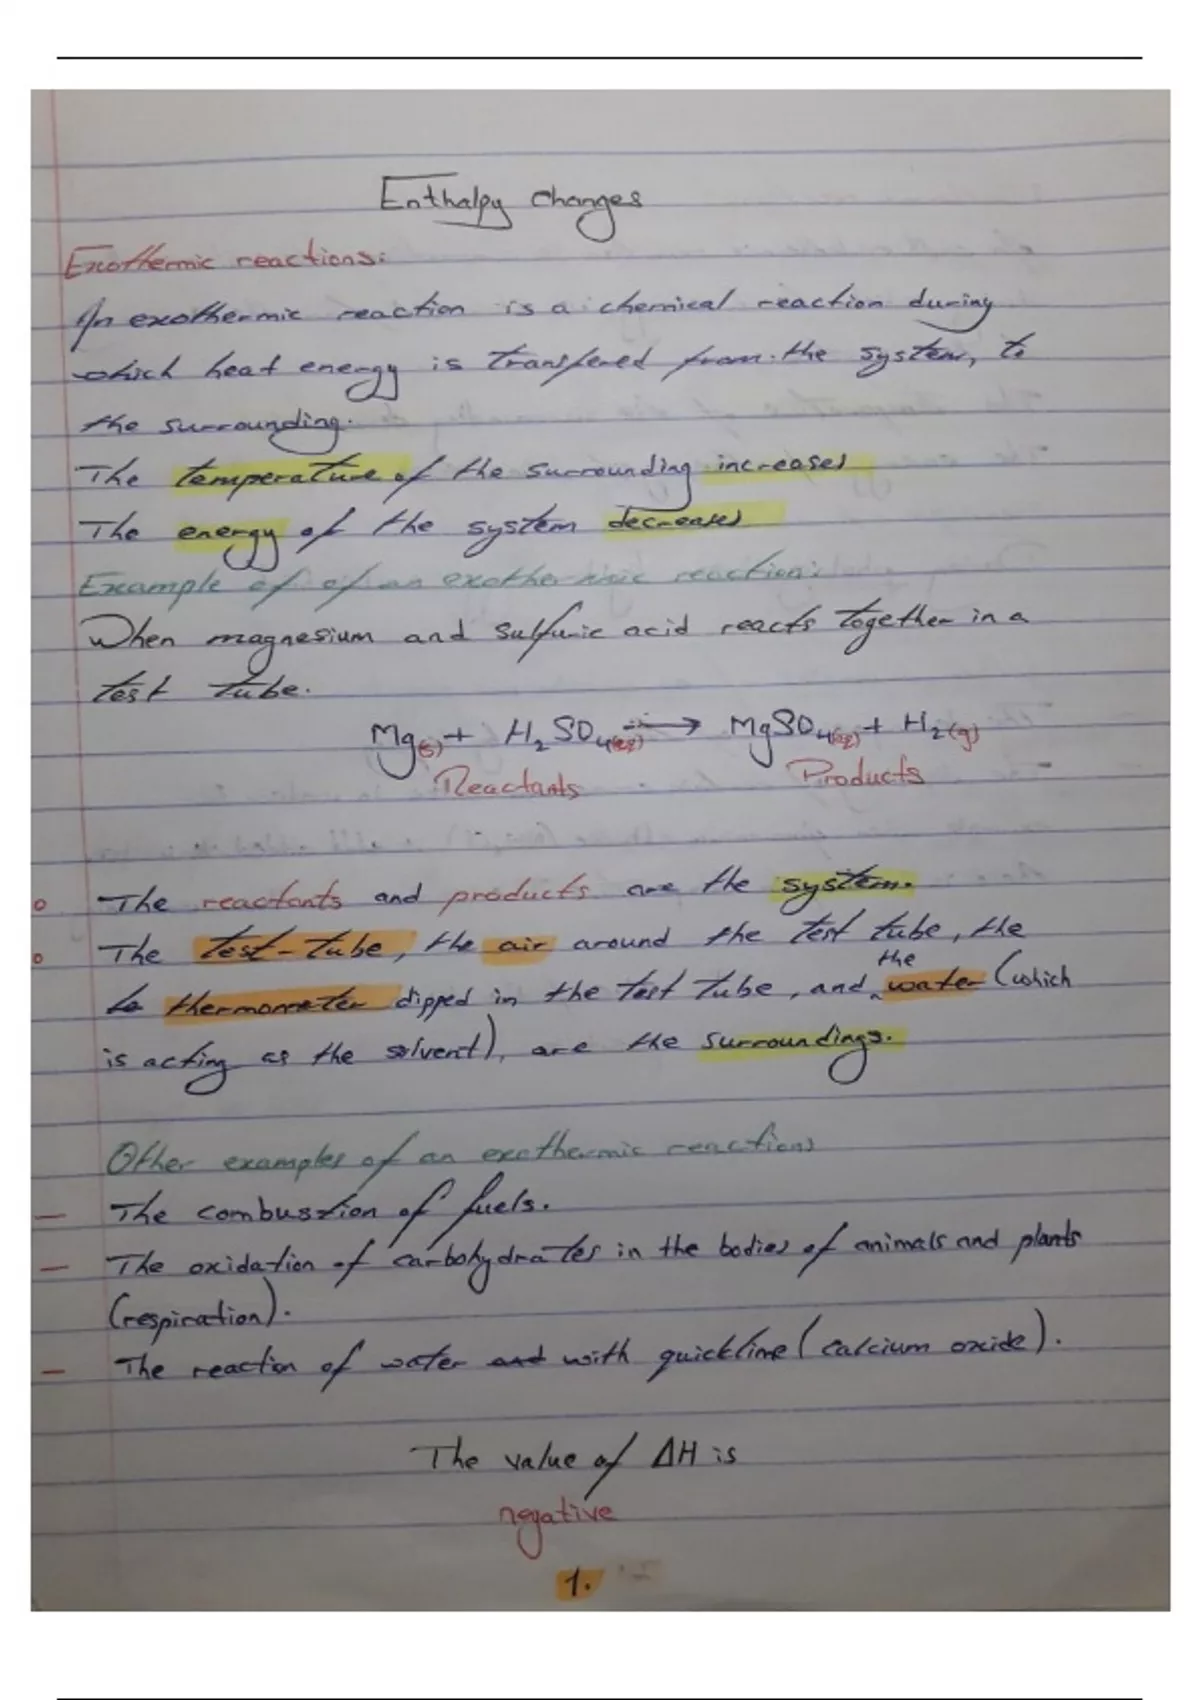 Enthalpy changes
Exothermic reactions:
An exothermic reaction is a chemical reaction during
which heat energy is transfered from the system, to
the surrounding.
The temperature of the surrounding increases
The energy of the system decreases
Example of of an exothermic reaction:
When magnesium and sulfuric acid reacts together in a
test tube.
Mg(s) + H₂SO₄(aq) → MgSO₄(aq) + H₂(g)
Reactants Products
The reactants and products are the system.
The test-tube, the air around the test tube, the
the
thermometer dipped in the test tube, and water (which
is acting as the solvent), are the surroundings.
Other examples of an exothermic reactions
- The combustion of fuels.
- The oxidation of carbohydrates in the bodies of animals and plants
(respiration).
- The reaction of water and with quicklime (calcium oxide).
The value of ΔH is
negative
1.